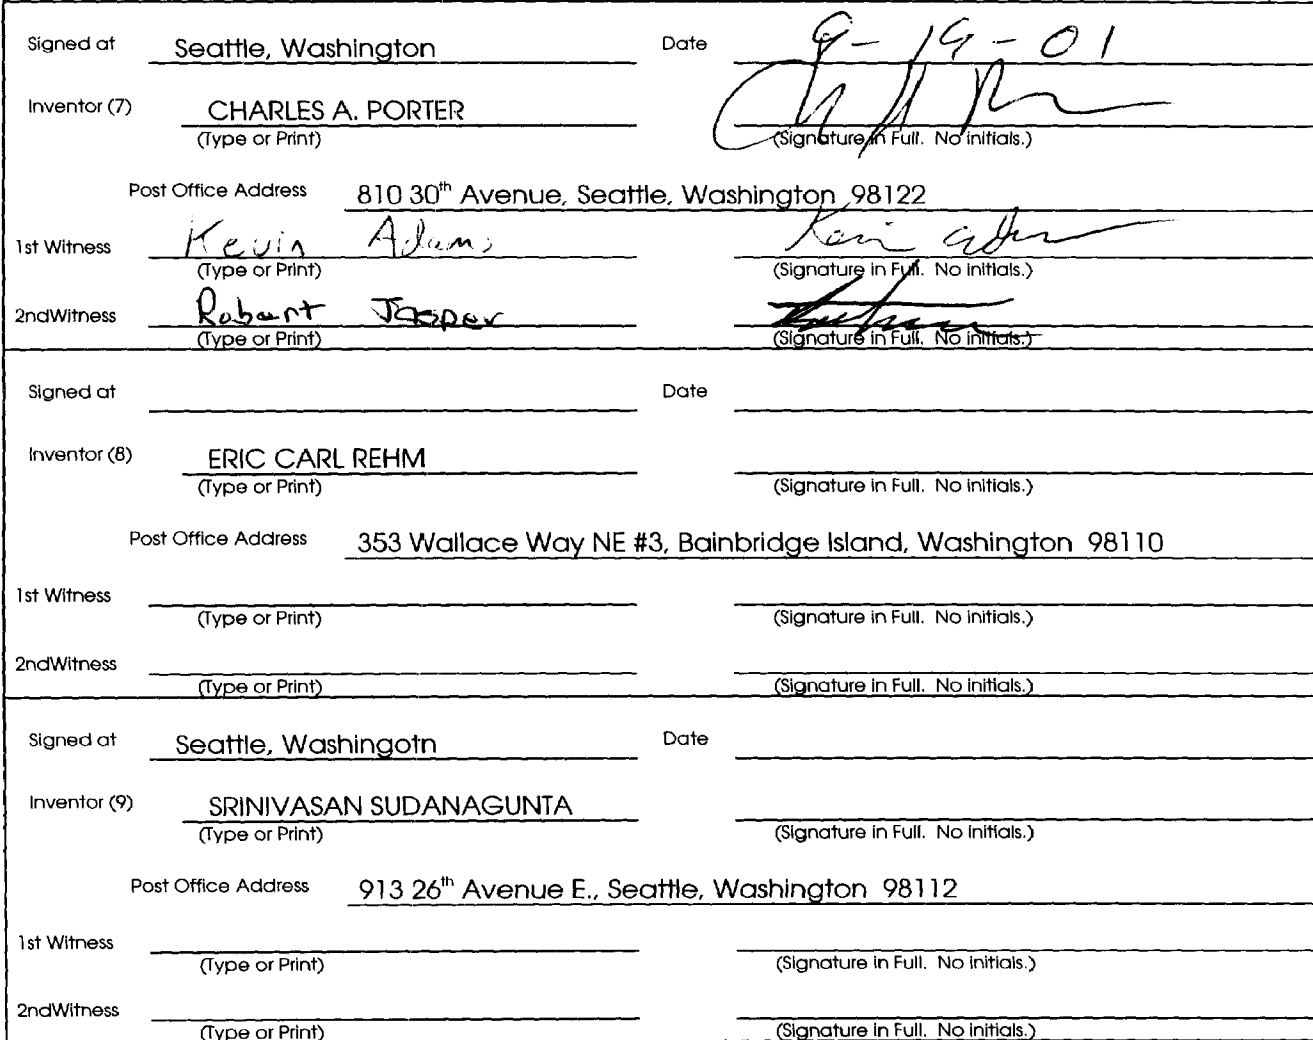 Signed at Seattle, Washington Date 9-19-01
Inventor (7) CHARLES A. PORTER
(Type or Print) (Signature in Full. No initials.)
Post Office Address 810 30th Avenue, Seattle, Washington 98122
1st Witness Kevin Adams
(Type or Print) (Signature in Full. No initials.)
2ndWitness Robert Jasper
(Type or Print) (Signature in Full. No initials.)
Signed at Date
Inventor (8) ERIC CARL REHM
(Type or Print) (Signature in Full. No initials.)
Post Office Address 353 Wallace Way NE #3, Bainbridge Island, Washington 98110
1st Witness
(Type or Print) (Signature in Full. No initials.)
2ndWitness
(Type or Print) (Signature in Full. No initials.)
Signed at Seattle, Washingotn Date
Inventor (9) SRINIVASAN SUDANAGUNTA
(Type or Print) (Signature in Full. No initials.)
Post Office Address 913 26th Avenue E., Seattle, Washington 98112
1st Witness
(Type or Print) (Signature in Full. No initials.)
2ndWitness
(Type or Print) (Signature in Full. No initials.)